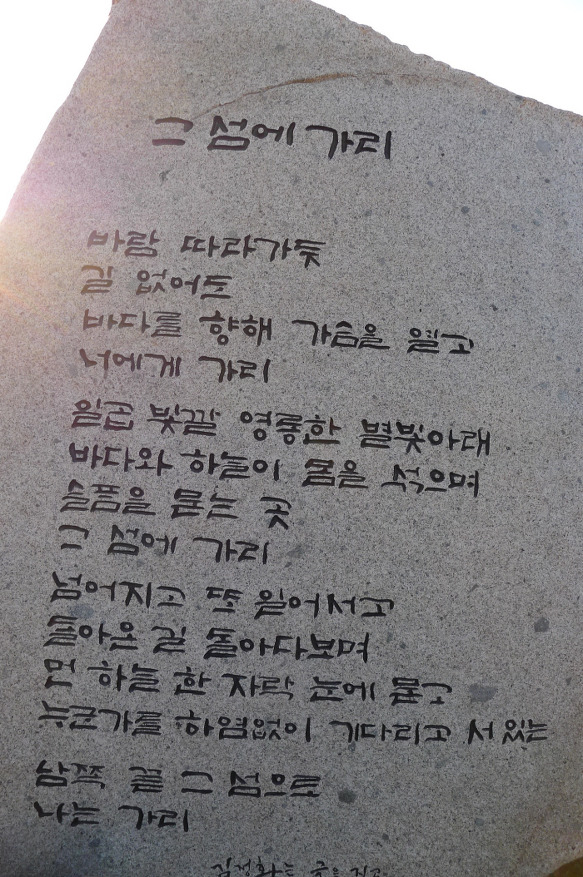 그 섬에 가리
바람 따라가듯
길 없어도
바다를 향해 가슴을 열고
너에게 가리
일곱 빛깔 영롱한 별빛아래
바다와 하늘이 몸을 섞으며
슬픔을 묻는 곳
그 섬에 가리
넘어지고 또 일어서고
돌아온 길 돌아다보며
먼 하늘 한 자락 눈에 묻고
누군가를 하염없이 기다리고 서 있는
남쪽 끝 그 섬으로
나는 가리